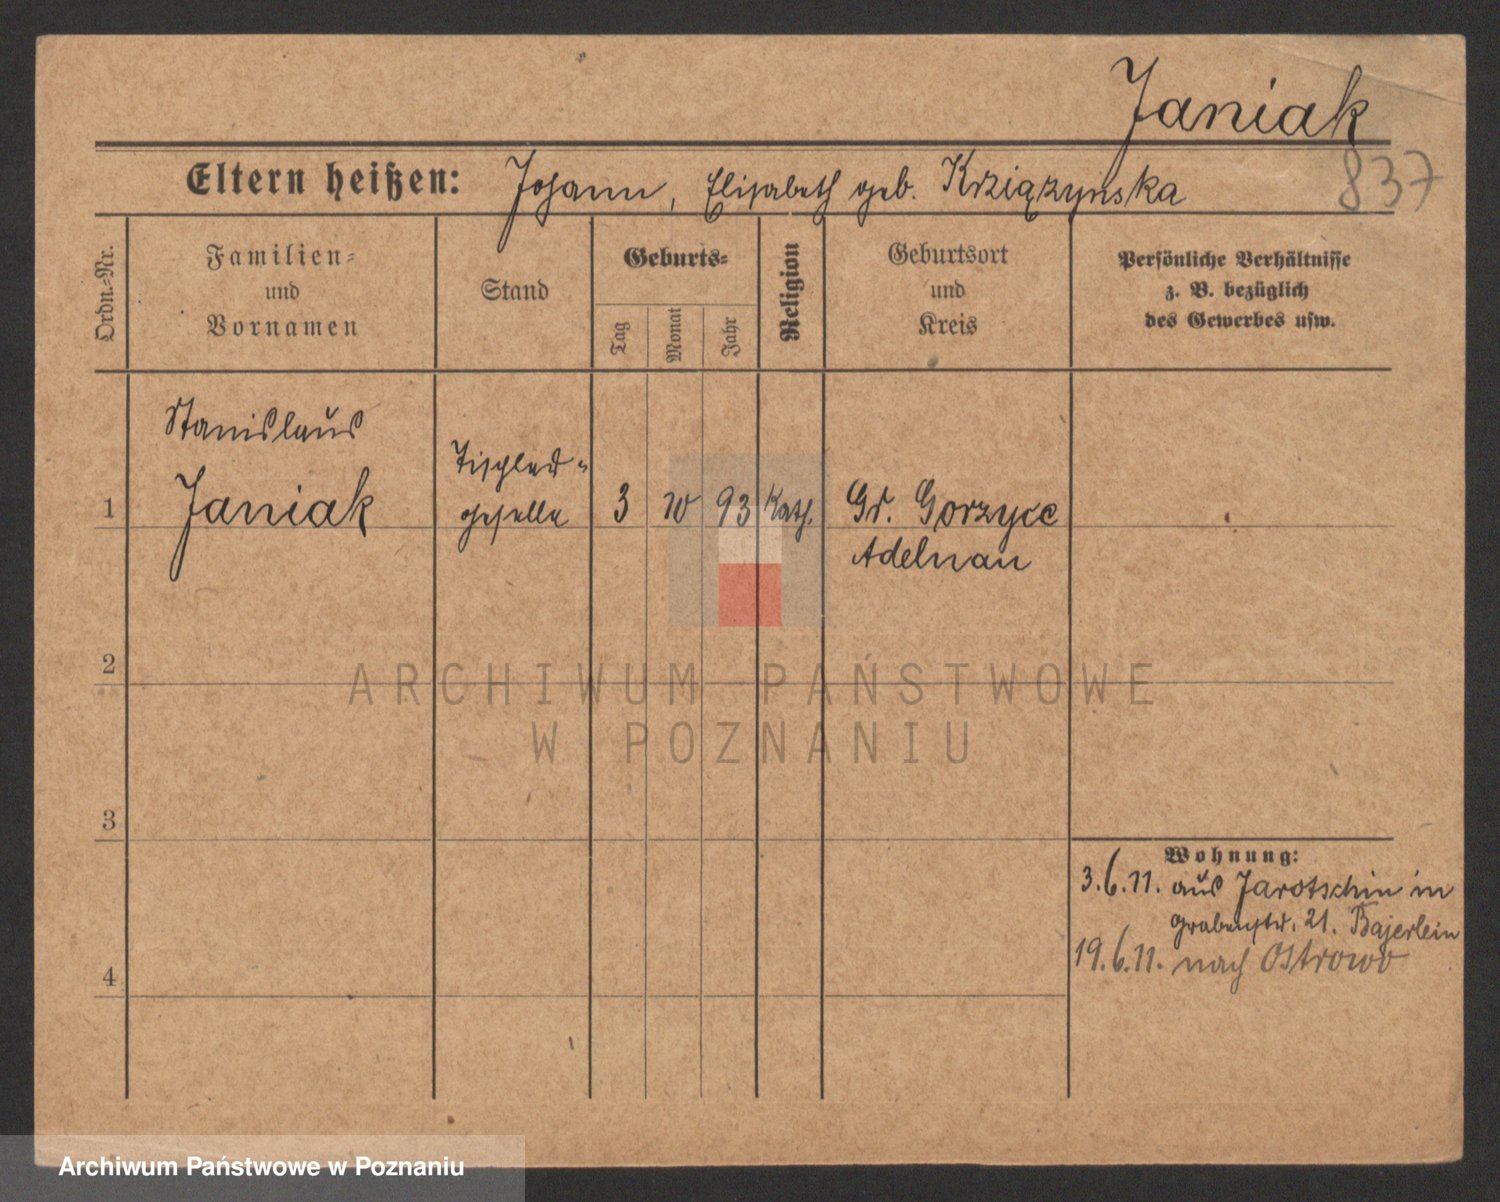 Janiak
837
Eltern heißen: Johann, Elisabeth geb. Krziązynska
Ordn.-Nr.
Familien-
und
Vornamen
Stand
Geburts-
Tag
Monat
Jahr
Religion
Geburtsort
und
Kreis
Persönliche Verhältnisse
z. B. bezüglich
des Gewerbes usw.
1
Stanislaus
Janiak
Tischler-
geselle
3
10
93
Kath.
Gr. Gorzyce
Adelnau
2
ARCHIWUM PAŃSTWOWE
W POZNANIU
3
Wohnung:
3.6.11. aus Jarotschin in
Grabenstr. 21. Bajerlein
19.6.11. nach Ostrowo
4
Archiwum Państwowe w Poznaniu